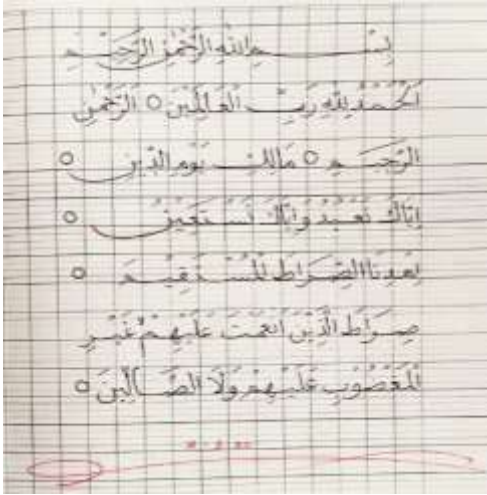 بِسْمِ اللهِ الرَّحْمٰنِ الرَّحِيْمِ
اَلْحَمْدُ لِلّٰهِ رَبِّ الْعَالَمِيْنَ ○ الرَّحْمٰنِ
الرَّحِيْمِ ○ مَالِكِ يَوْمِ الدِّيْنِ ○
اِيَّاكَ نَعْبُدُ وَاِيَّاكَ نَسْتَعِيْنُ ○
اِهْدِنَا الصِّرَاطَ الْمُسْتَقِيْمَ ○
صِرَاطَ الَّذِيْنَ اَنْعَمْتَ عَلَيْهِمْ غَيْرِ
الْمَغْضُوْبِ عَلَيْهِمْ وَلَا الضَّالِّيْنَ ○